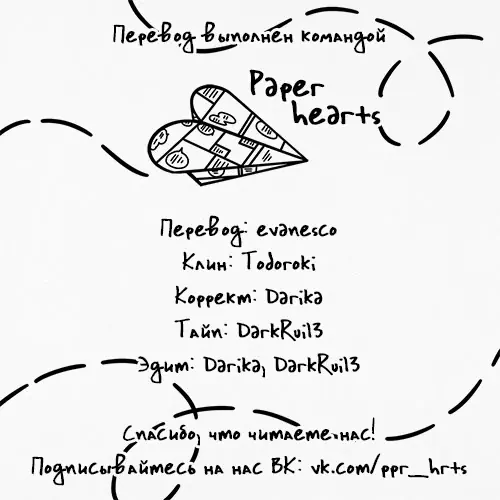 Перевод выполнен командой
Paper
hearts
Перевод: evanesco
Клин: Todoroki
Коррект: Darika
Тайп: DarkRui13
Эдит: Darika, DarkRui13
Спасибо, что читаете нас!
Подписывайтесь на нас ВК: vk.com/ppr_hrts